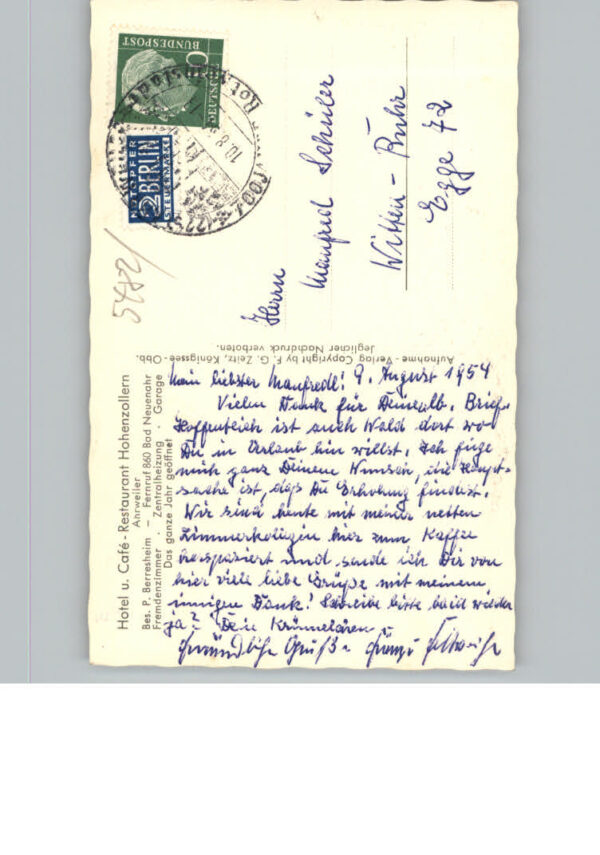 DEUTSCHE
BUNDESPOST
NOTOPFER
2 BERLIN
STEUERMARKE
Herrn
Manfred Schüler
Witten - Ruhr
Egge 72
5482/
Aufnahme - Verlag Copyright by F. G. Zeitz, Königssee - Obb.
Jeglicher Nachdruck verboten.
Hotel u. Café - Restaurant Hohenzollern
Ahrweiler
Bes. P. Berresheim — Fernruf 860 Bad Neuenahr
Fremdenzimmer · Zentralheizung · Garage
Das ganze Jahr geöffnet
Mein liebster Manfredl! 9. August 1954
Vielen Dank für Deinen lb. Brief.
Hoffentlich ist auch Wald dort wo
Du in Urlaub hin willst. Ich füge
mich ganz Deinem Wunsch, die Haupt-
sache ist, daß Du Erholung findest.
Wir sind heute mit meiner netten
Zimmerkollegin hier zum Kaffee
spaziert und sende ich Dir von
hier viele liebe Grüße mit meinem
innigen Dank! Schreibe bitte bald wieder
ja? Dein
Gruß